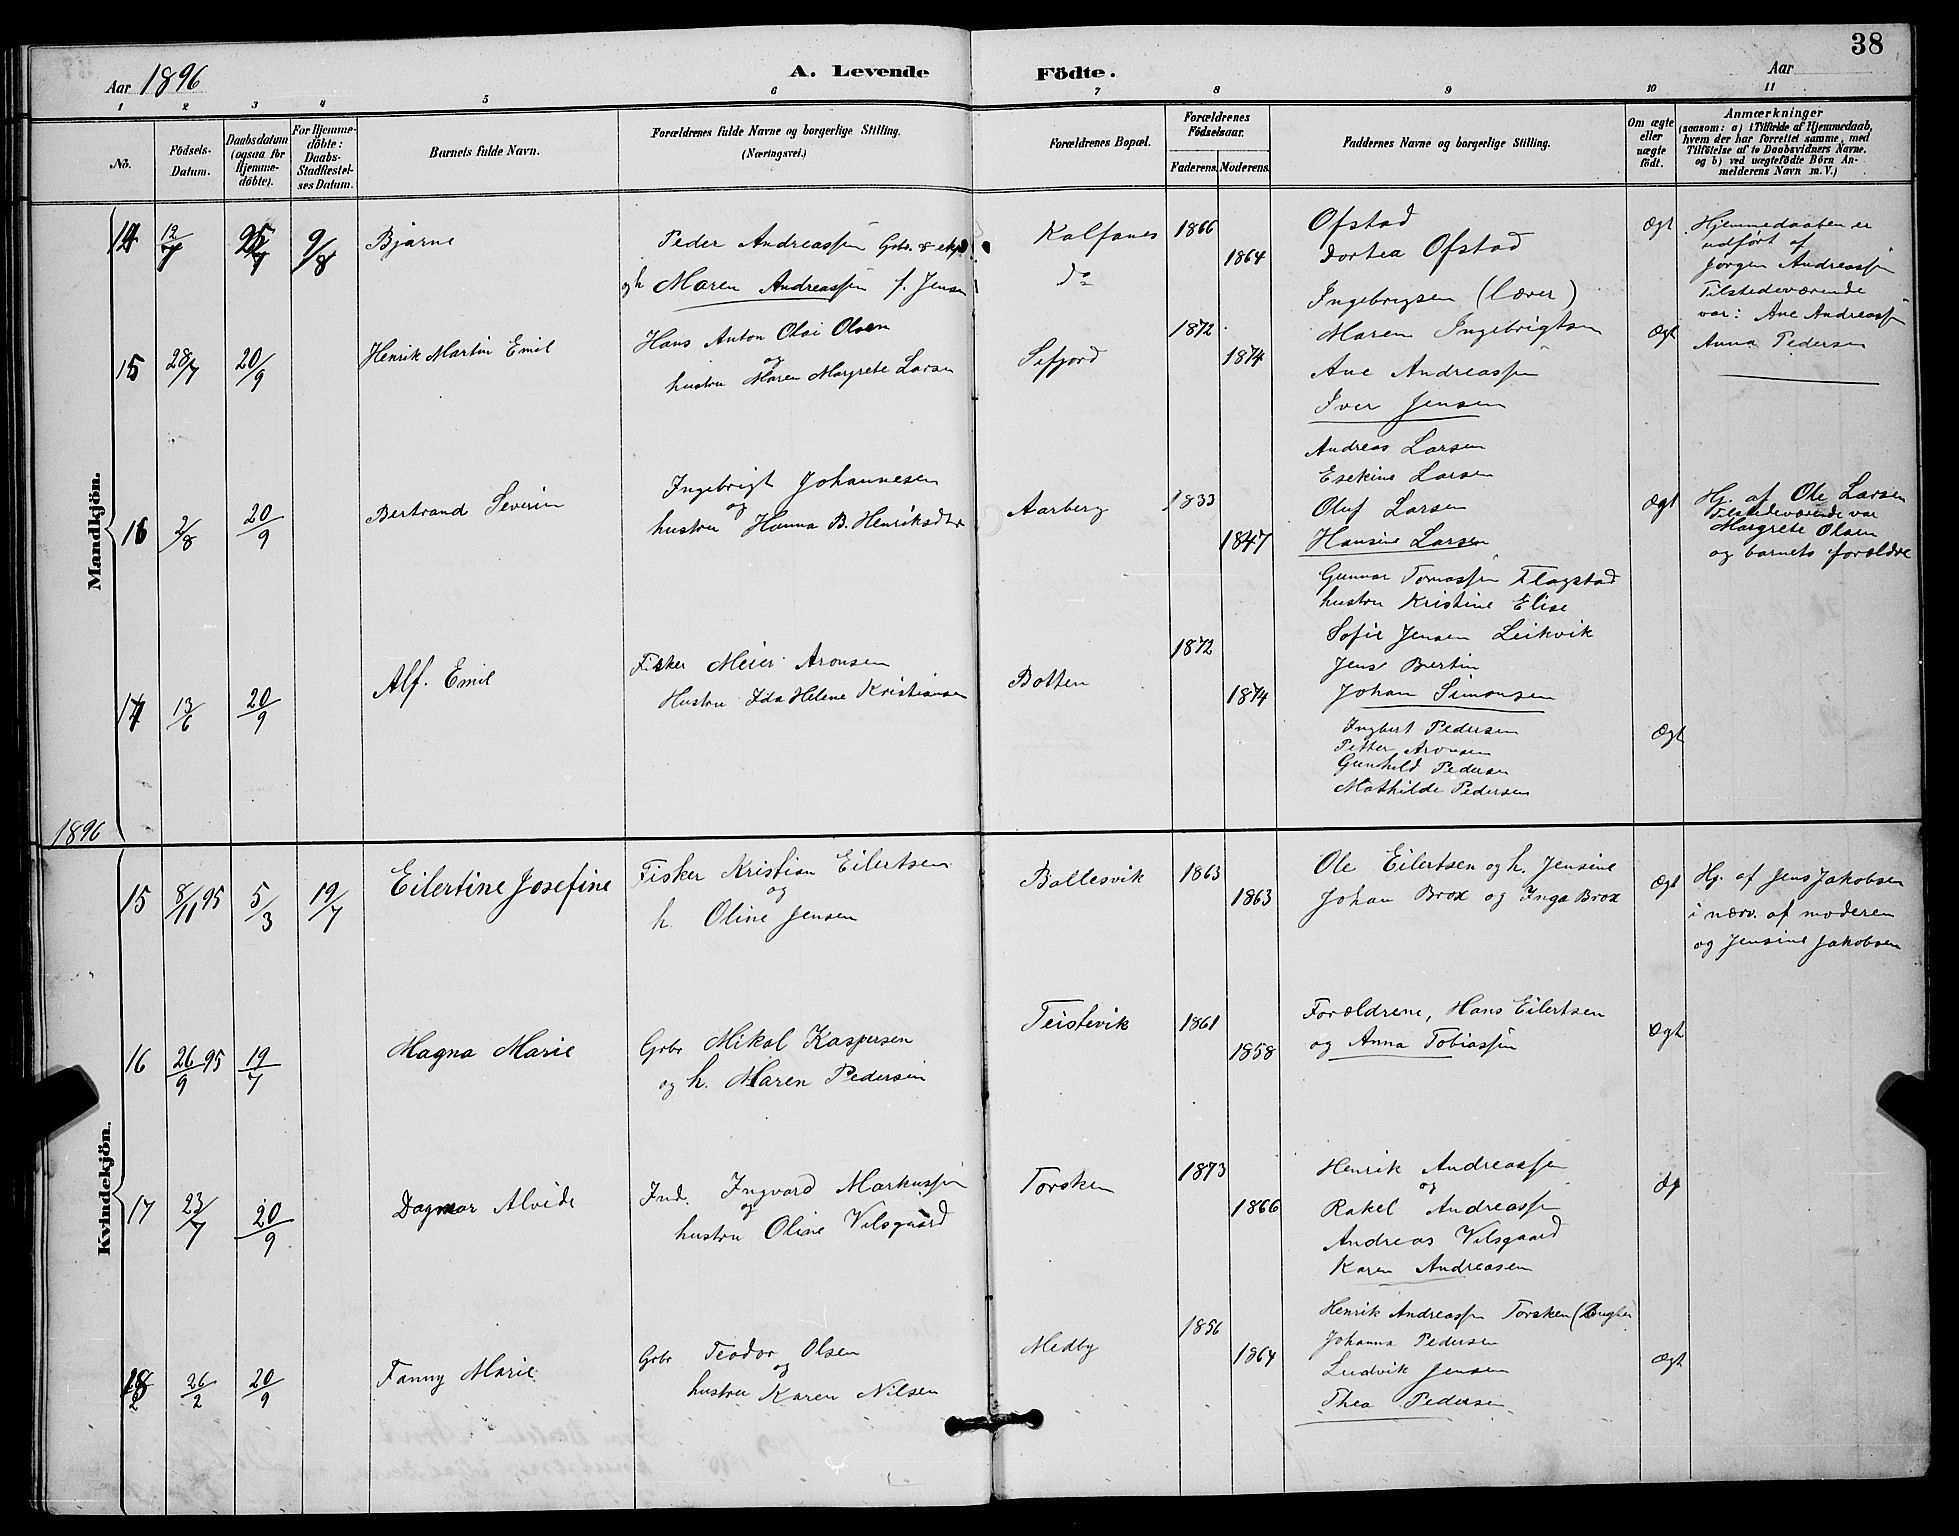 38
Aar 1896
A. Levende Födte.
Aar
1 2 3 4 5 6 7 8 9 10 11
No.
Födsels-Datum.
Daabsdatum (ogsaa för Hjemme-döbte).
For Hjemme-döbte: Daabs-Stadfestel-ses Datum.
Barnets fulde Navn.
Forældrenes fulde Navne og borgerlige Stilling. (Næringsvei.)
Forældrenes Bopæl.
Forældrenes Födselsaar.
Faderens. Moderens.
Faddernes Navne og borgerlige Stilling.
Om ægte eller uægte födt.
Anmærkninger
(saasom: a) i Tilfælde af Hjemmedaab, hvem der har forrettet samme, med Tilföielse af to Daabsvidners Navne, og b) ved uægtefödte Börn An-melderens Navn m. V.)
Mandkjön.
14 12/7 9/8 Bjarne
Peder Andreassen Gbr.
og h Maren Andreassen f. Jensen
Kalfanes
do
1866
1864
Ofstad
Dortea Ofstad
Ingebrigsen (lærer)
Maren Ingebrigtsen
Ane Andreassen
Iver Jensen
Ægt
Hjemmedaaben er
udført af
Jørgen Andreassen
Tilstedeværende
var: Ane Andreassen
Anna Pedersen
15 28/7 20/9 Henrik Martin Emil
Hans Anton Olai Olsen
og
hustru Maren Margrete Larsen
Sifjord
1872
1874
Andreas Larsen
Esekine Larsen
Oluf Larsen
Hansine Larsen
Ægt
16 2/8 20/9 Bertrand Severin
Ingebrigt Johannesen
og
hustru Hanna B. Henriksdtr
Aarberg
1833
1847
Gunnar Tomassen Flagstad
hustru Kristine Elise
Sofie Jensen Leikvik
Jens Bertin
Johan Simonsen
Ægt
Hj. af Ole Larsen
Tilstedeværende var
Margrete Olsen
og barnets forældre
17 13/6 20/9 Alf. Emil
Fisker Meier Aronsen
Hustru Ida Helene Kristiansen
Botten
1872
1874
Ingbert Pedersen
Petter Aronsen
Gunhild Pedersen
Mathilde Pedersen
Ægt
1896
Kvindekjön.
15 8/11 95 5/3 19/7 Eilertine Josefine
Fisker Kristian Eilertsen
og
h. Oline Jensen
Ballesvik
1863
1863
Ole Eilertsen og h. Jensine
Johan Brox og Inga Brox
Ægt
Hj. af Jens Jakobsen
i nærv. af moderen
og Jensine Jakobsen
16 26/9 95 19/7 Magna Marie
Grbr Mikal Kaspersen
og h. Maren Pedersen
Teistevik
1861
1858
Forældrene, Hans Eilertsen
og Anna Tobiassen
Ægt
17 23/7 20/9 Dagmar Alvide
Ind. Ingvard Markussen
og
hustru Oline Vilsgaard
Torsken
1873
1866
Henrik Andreassen
og
Rakel Andreassen
Andreas Vilsgaard
Karen Andreasen
Æg
18 26/2 20/9 Fanny Marie
Grbr Teodor Olsen
og
hustru Karen Nilsen
Medby
1856
1864
Henrik Andreassen Torsken
Johanna Pedersen
Ludvik Jensen
Thea Pedersen
Ægt